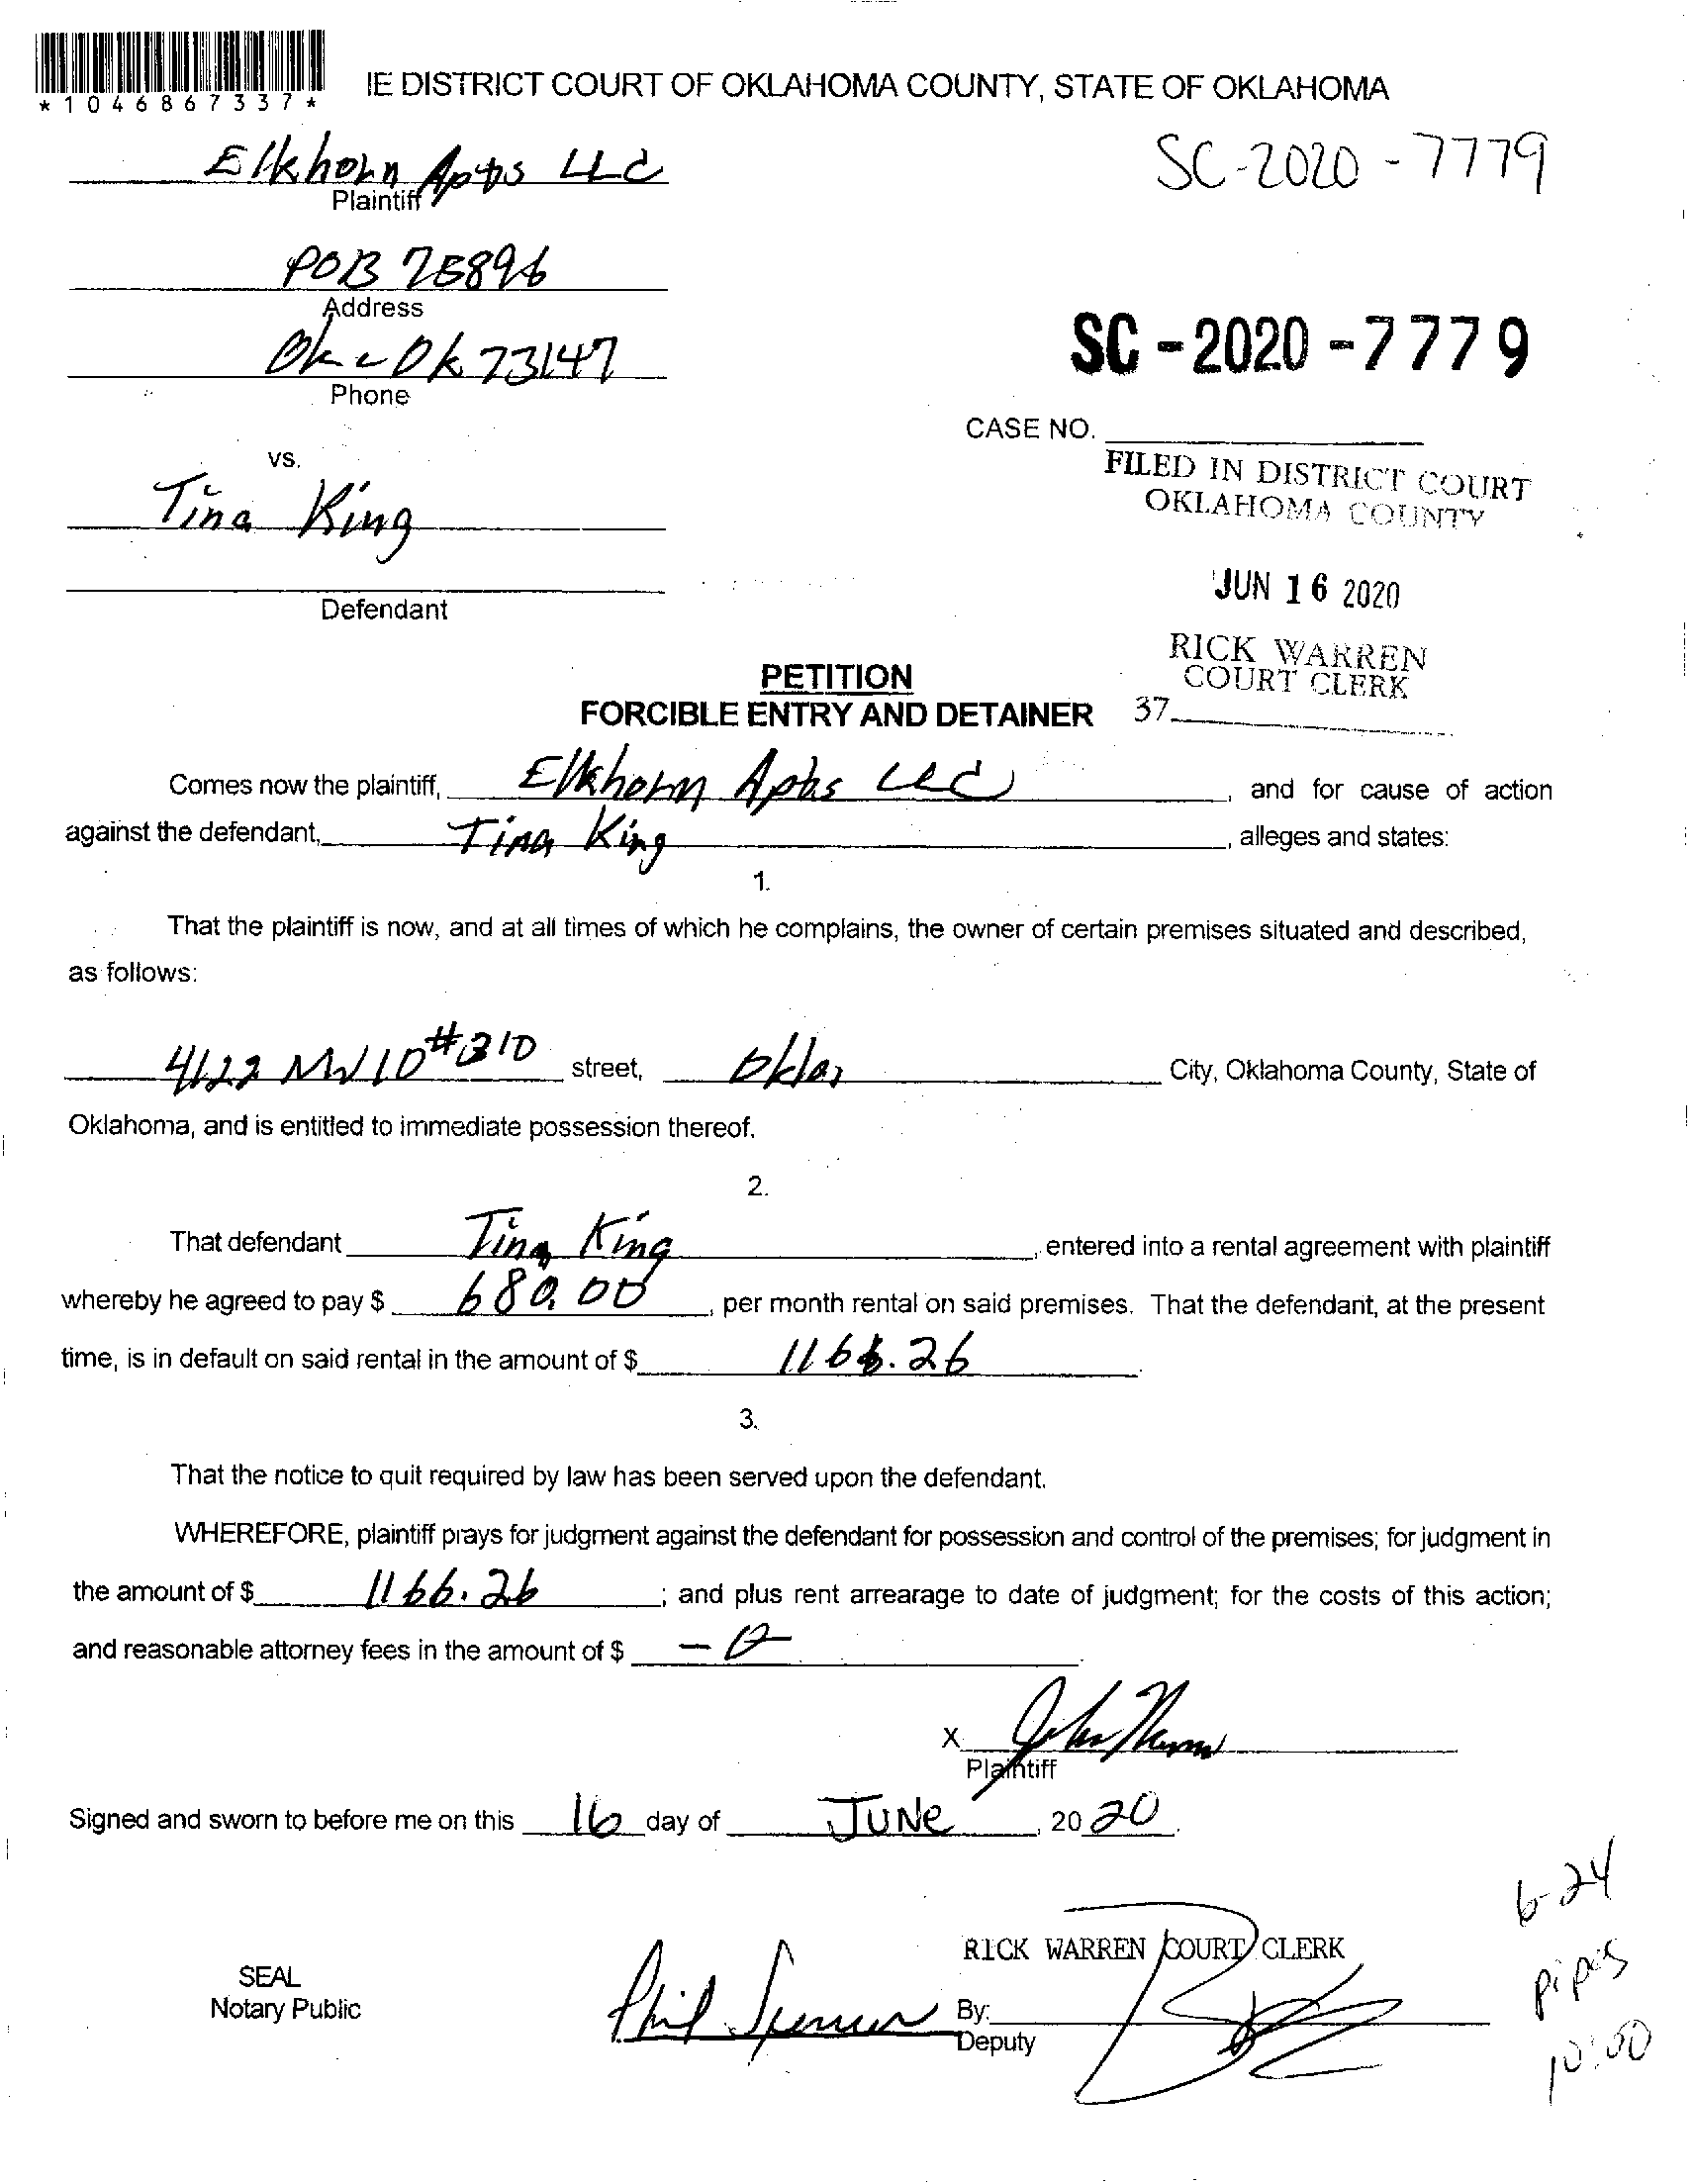 *1046867337*
IE DISTRICT COURT OF OKLAHOMA COUNTY, STATE OF OKLAHOMA
Elkhorn Apts LLC
Plaintiff
SC-2020-7779
POB 75896
Address
OKC OK 73147
Phone
SC-2020-7779
CASE NO.
vs.
Tina King
Defendant
FILED IN DISTRICT COURT
OKLAHOMA COUNTY
JUN 16 2020
RICK WARREN
COURT CLERK
37
PETITION
FORCIBLE ENTRY AND DETAINER
Comes now the plaintiff, Elkhorn Apts LLC, and for cause of action
against the defendant, Tina King, alleges and states:
1.
That the plaintiff is now, and at all times of which he complains, the owner of certain premises situated and described,
as follows:
4122 NW 10 #310 street, Okla, City, Oklahoma County, State of
Oklahoma, and is entitled to immediate possession thereof.
2.
That defendant Tina King, entered into a rental agreement with plaintiff
whereby he agreed to pay $ 680.00, per month rental on said premises. That the defendant, at the present
time, is in default on said rental in the amount of $ 1166.26.
3.
That the notice to quit required by law has been served upon the defendant.
WHEREFORE, plaintiff prays for judgment against the defendant for possession and control of the premises; for judgment in
the amount of $ 1166.26; and plus rent arrearage to date of judgment; for the costs of this action;
and reasonable attorney fees in the amount of $ -0.
X John
Plaintiff
Signed and sworn to before me on this 16 day of JUNE, 2020.
6-24
pipes
10:00
RICK WARREN COURT CLERK
SEAL
Notary Public
Phil Spencer
By:
Deputy